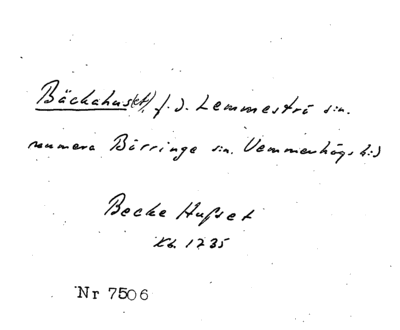 Bäckahus(et), f.d. Lemmeströ sn.
numera Börringe sn. Vemmenhögs hd
Becke Hußet
Kb. 1735
Nr 7506